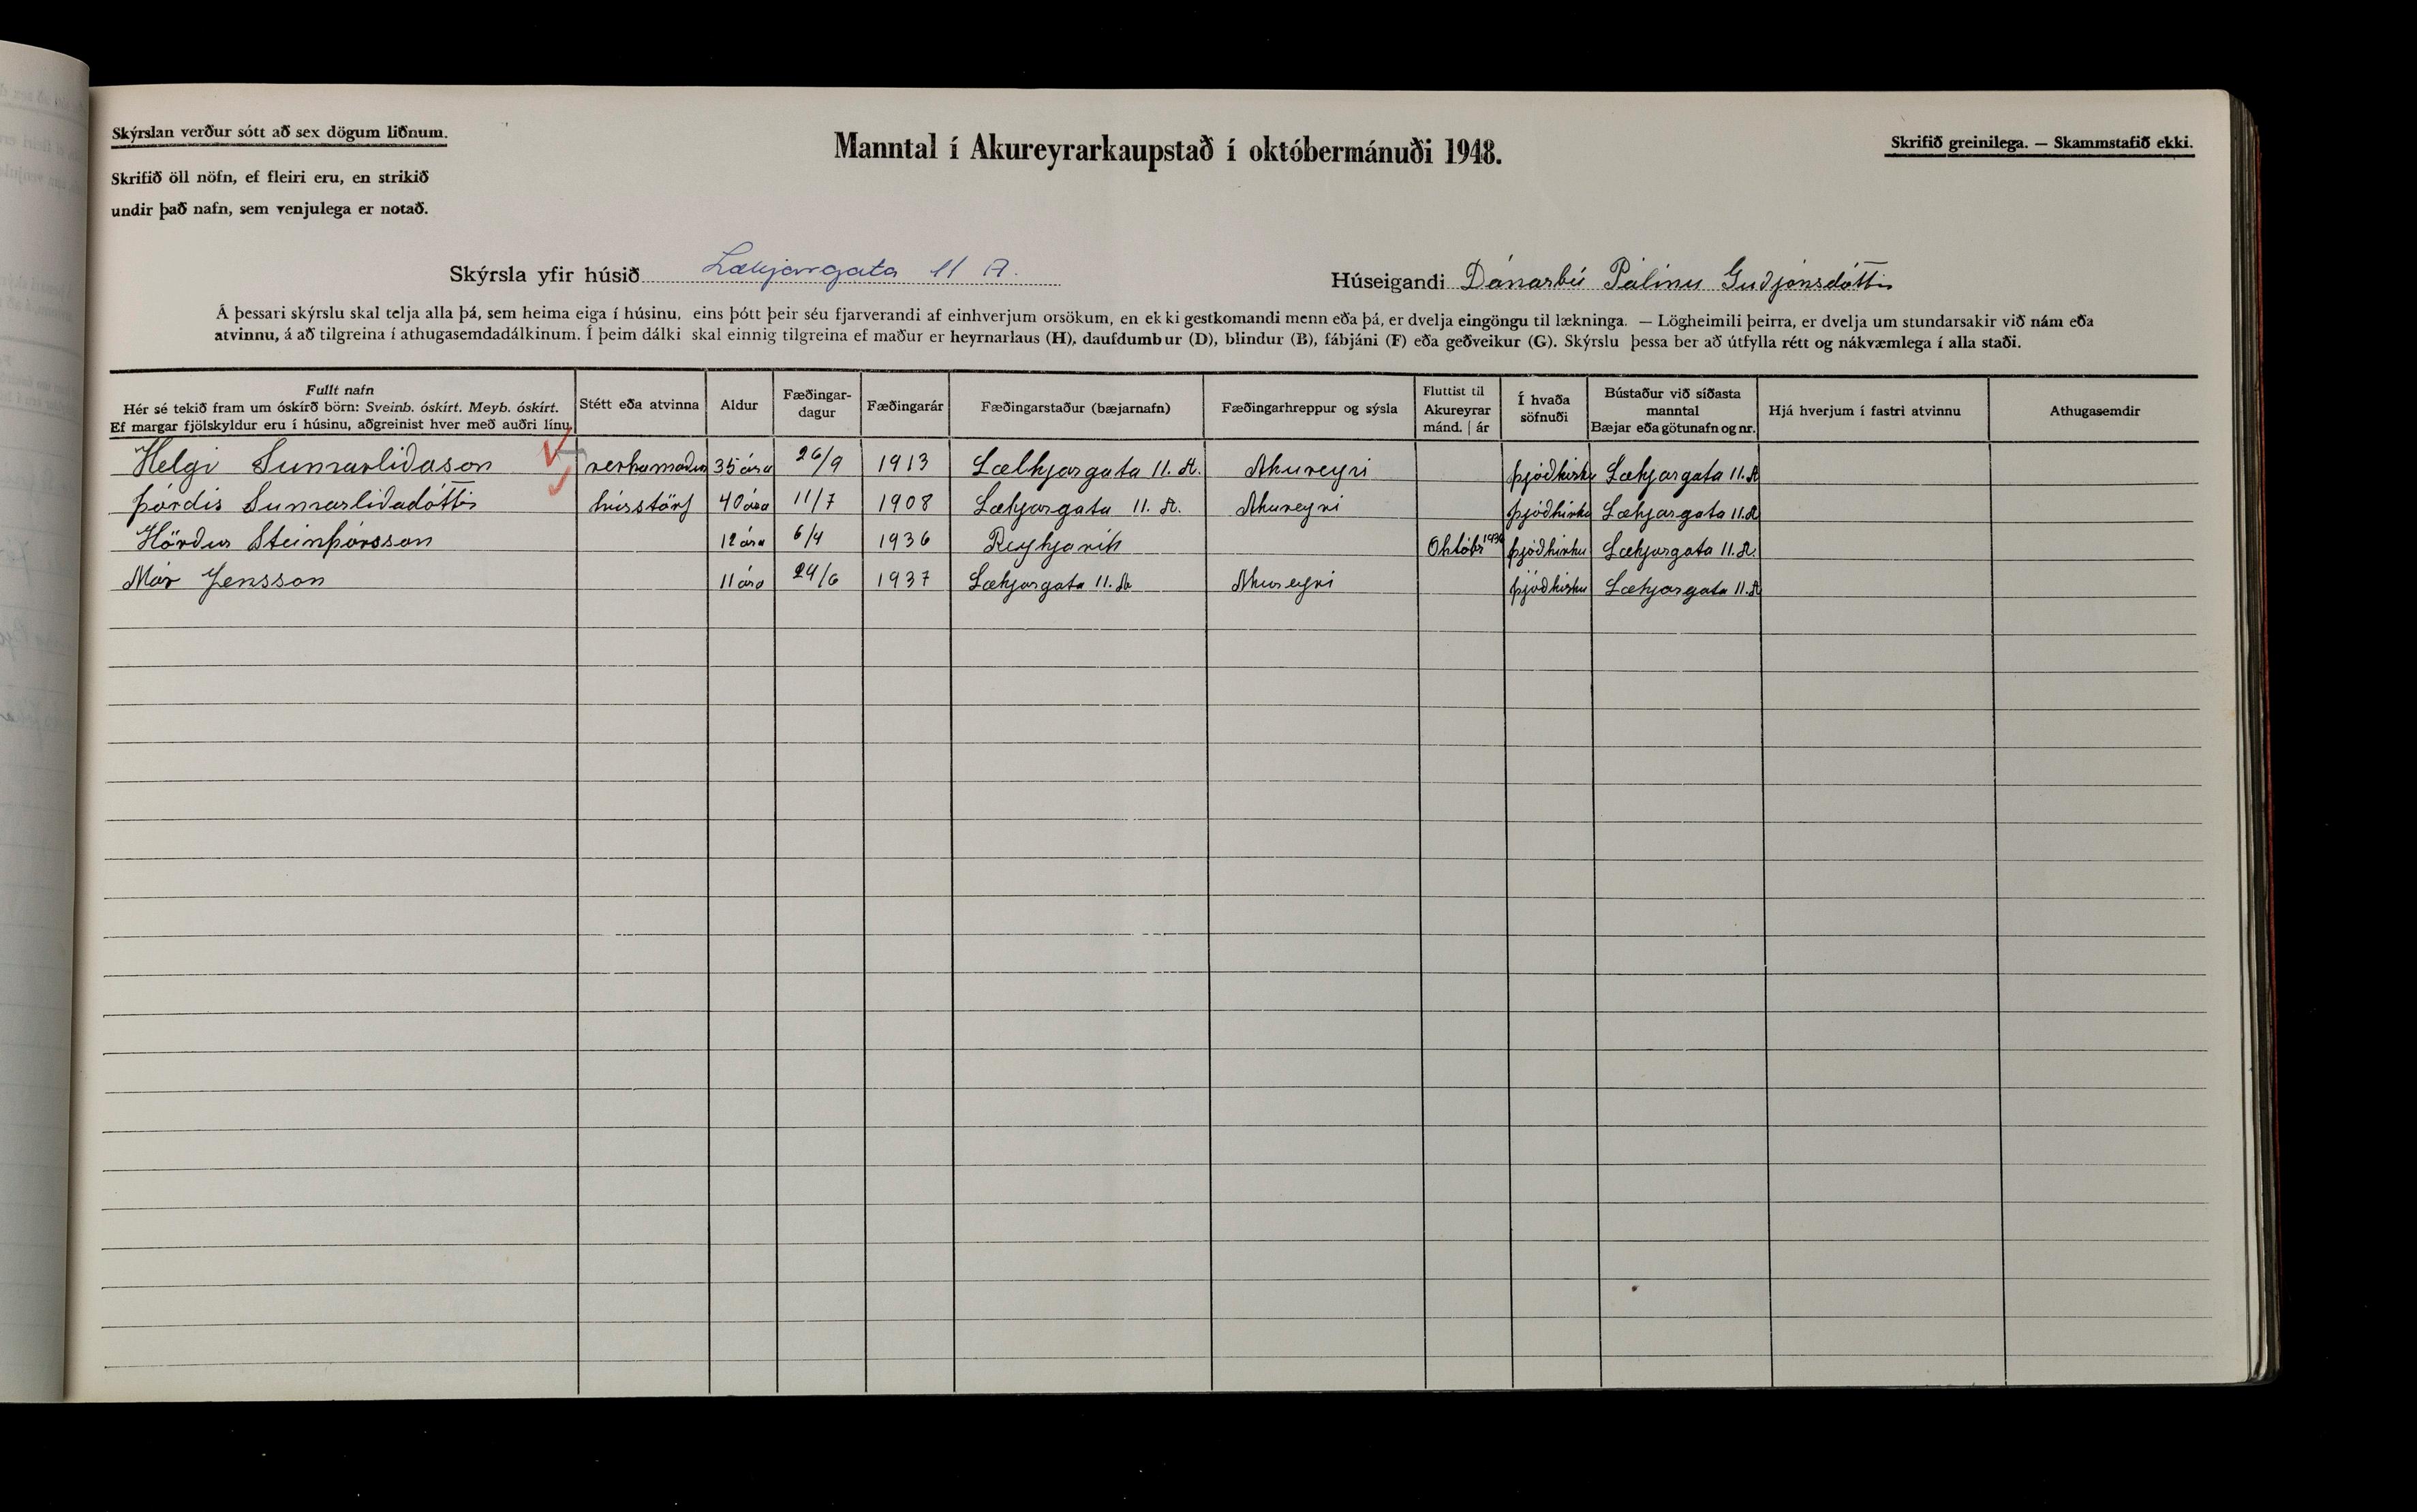 Skýrslan verður sótt að sex dögum liðnum.
Skrifið öll nöfn, ef fleiri eru, en strikið
undir það nafn, sem venjulega er notað.
Manntal í Akureyrarkaupstað í októbermánuði 1948.
Skrifið greinilega. — Skammstafið ekki.
Skýrsla yfir húsið Lækjargata 11 A.
Húseigandi Dánarbú Pálínu Guðjónsdóttir
Á þessari skýrslu skal telja alla þá, sem heima eiga í húsinu, eins þótt þeir séu fjarverandi af einhverjum orsökum, en ekki gestkomandi menn eða þá, er dvelja eingöngu til lækninga. — Lögheimili þeirra, er dvelja um stundarsakir við nám eða
atvinnu, á að tilgreina í athugasemdadálkinum. Í þeim dálki skal einnig tilgreina ef maður er heyrnarlaus (H), daufdumbur (D), blindur (B), fábjáni (F) eða geðveikur (G). Skýrslu þessa ber að útfylla rétt og nákvæmlega í alla staði.
Fullt nafn
Hér sé tekið fram um óskírð börn: Sveinb. óskírt. Meyb. óskírt.
Ef margar fjölskyldur eru í húsinu, aðgreinist hver með auðri línu.
Stétt eða atvinna
Aldur
Fæðingar-
dagur
Fæðingarár
Fæðingarstaður (bæjarnafn)
Fæðingarhreppur og sýsla
Fluttist til
Akureyrar
mánd. | ár
Í hvaða
söfnuði
Bústaður við síðasta
manntal
Bæjar eða götunafn og nr.
Hjá hverjum í fastri atvinnu
Athugasemdir
Helgi Sumarliðason verkamaður 35 ára 26/9 1913 Lælkjargata 11. A. Akureyri þjóðkirku Lækjargata 11. A
Þórdís Sumarliðadóttir hússtörf 40 ára 11/7 1908 Lækjargata 11. A. Akureyri þjóðkirku Lækjargata 11. A
Hörður Steinþórsson 12 ára 6/4 1936 Reykjavík Október 1936 þjóðkirku Lækjargata 11. A.
Már Jensson 11 ára 24/6 1937 Lækjargata 11. A Akureyri þjóðkirku Lækjargata 11. A